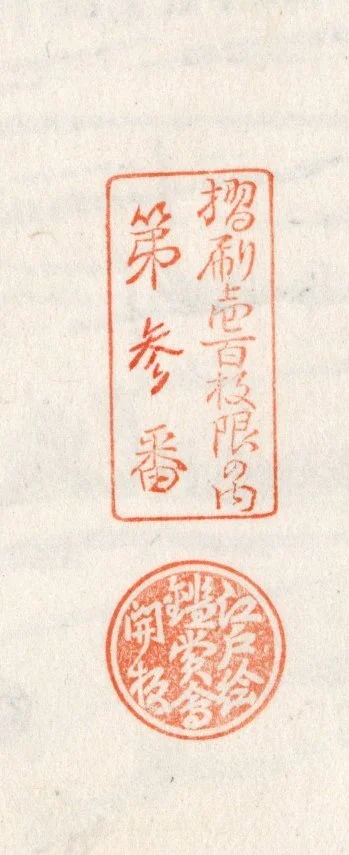 摺刷壱百枚限の内
第参番
江戸絵
鑑賞会
開板